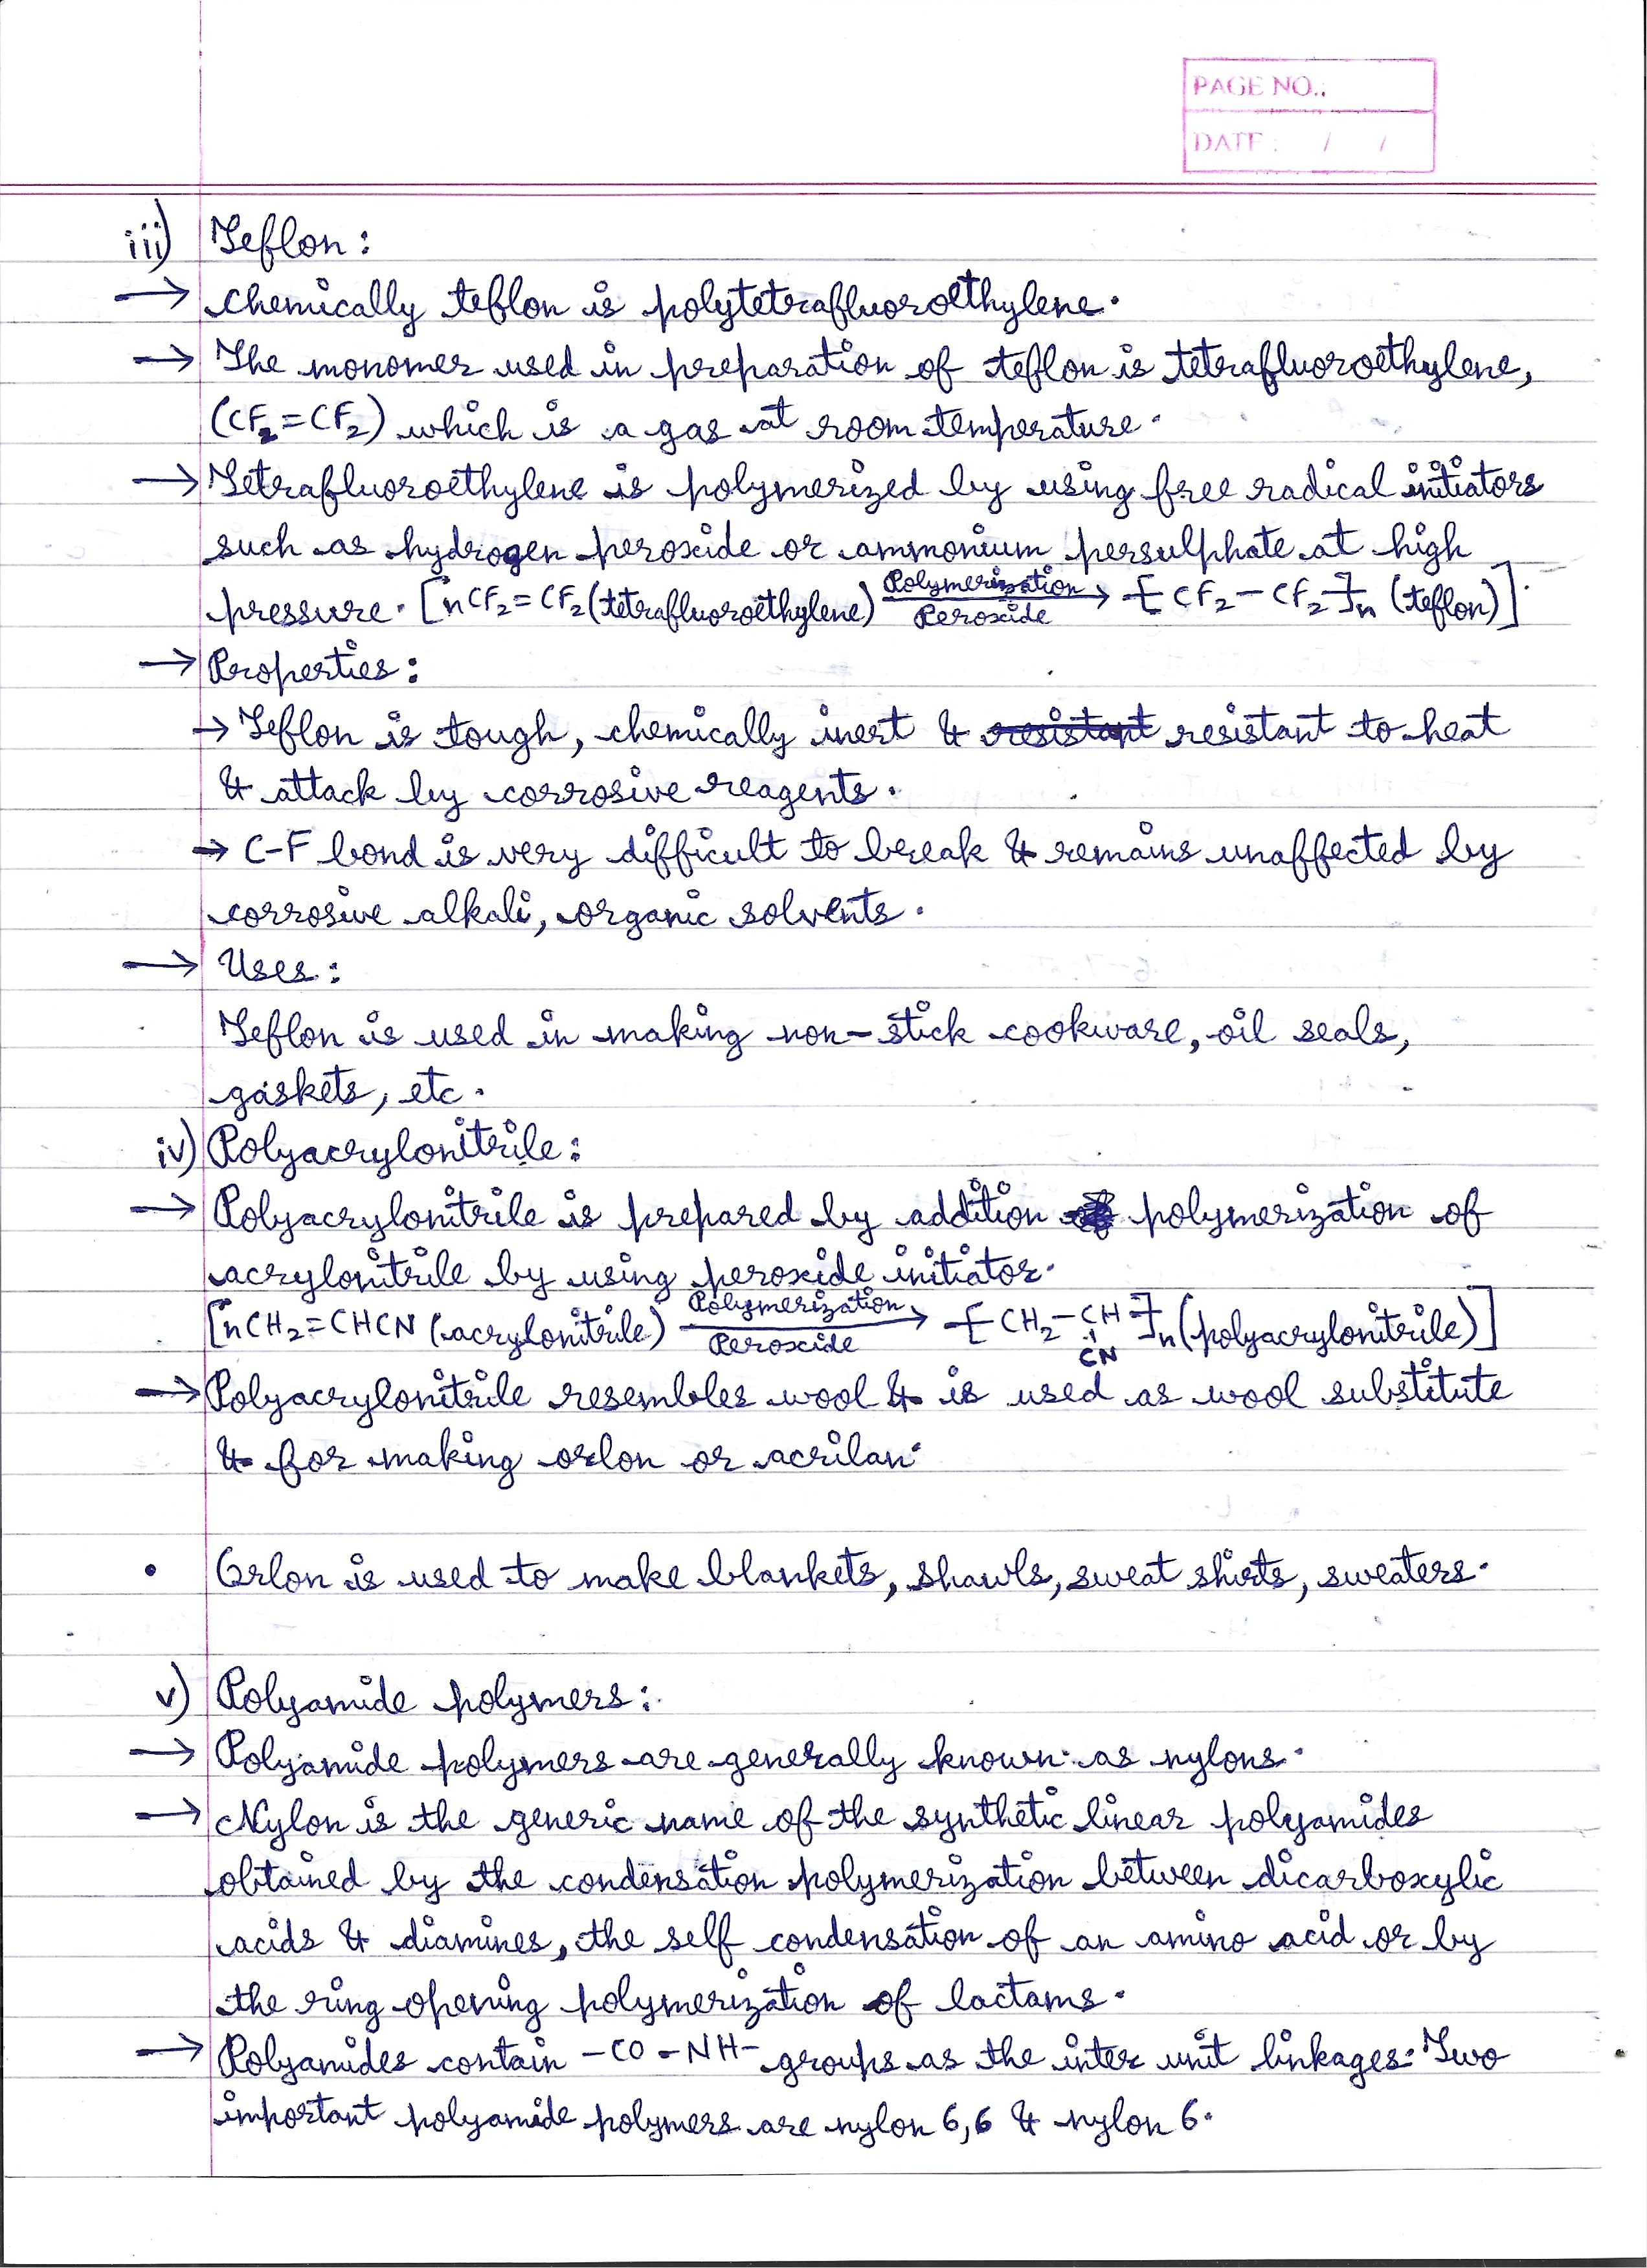 PAGE NO.:
DATE : / /
iii) Teflon :
→ chemically teflon is polytetrafluoroethylene.
→ The monomer used in preparation of teflon is tetrafluoroethylene,
(CF₂=CF₂) which is a gas at room temperature.
→ Tetrafluoroethylene is polymerized by using free radical initiators
such as hydrogen peroxide or ammonium persulphate at high
pressure. [nCF₂=CF₂(tetrafluoroethylene) Polymerization/Peroxide → -[CF₂-CF₂]-n (teflon)].
→ Properties :
→ Teflon is tough, chemically inert & resistant resistant to heat
& attack by corrosive reagents.
→ C-F bond is very difficult to break & remains unaffected by
corrosive alkali, organic solvents.
→ Uses :
Teflon is used in making non-stick cookware, oil seals,
gaskets, etc.
iv) Polyacrylonitrile :
→ Polyacrylonitrile is prepared by addition polymerization of
acrylonitrile by using peroxide initiator.
[nCH₂=CHCN (acrylonitrile) Polymerization/Peroxide → -[CH₂-CH]-n (polyacrylonitrile)]
CN
→ Polyacrylonitrile resembles wool & is used as wool substitute
& for making orlon or acrilan.
• Orlon is used to make blankets, shawls, sweat shirts, sweaters.
v) Polyamide polymers :
→ Polyamide polymers are generally known as nylons.
→ Nylon is the generic name of the synthetic linear polyamides
obtained by the condensation polymerization between dicarboxylic
acids & diamines, the self condensation of an amino acid or by
the ring opening polymerization of lactams.
→ Polyamides contain -CO-NH- groups as the inter unit linkages. Two
important polyamide polymers are nylon 6,6 & nylon 6.